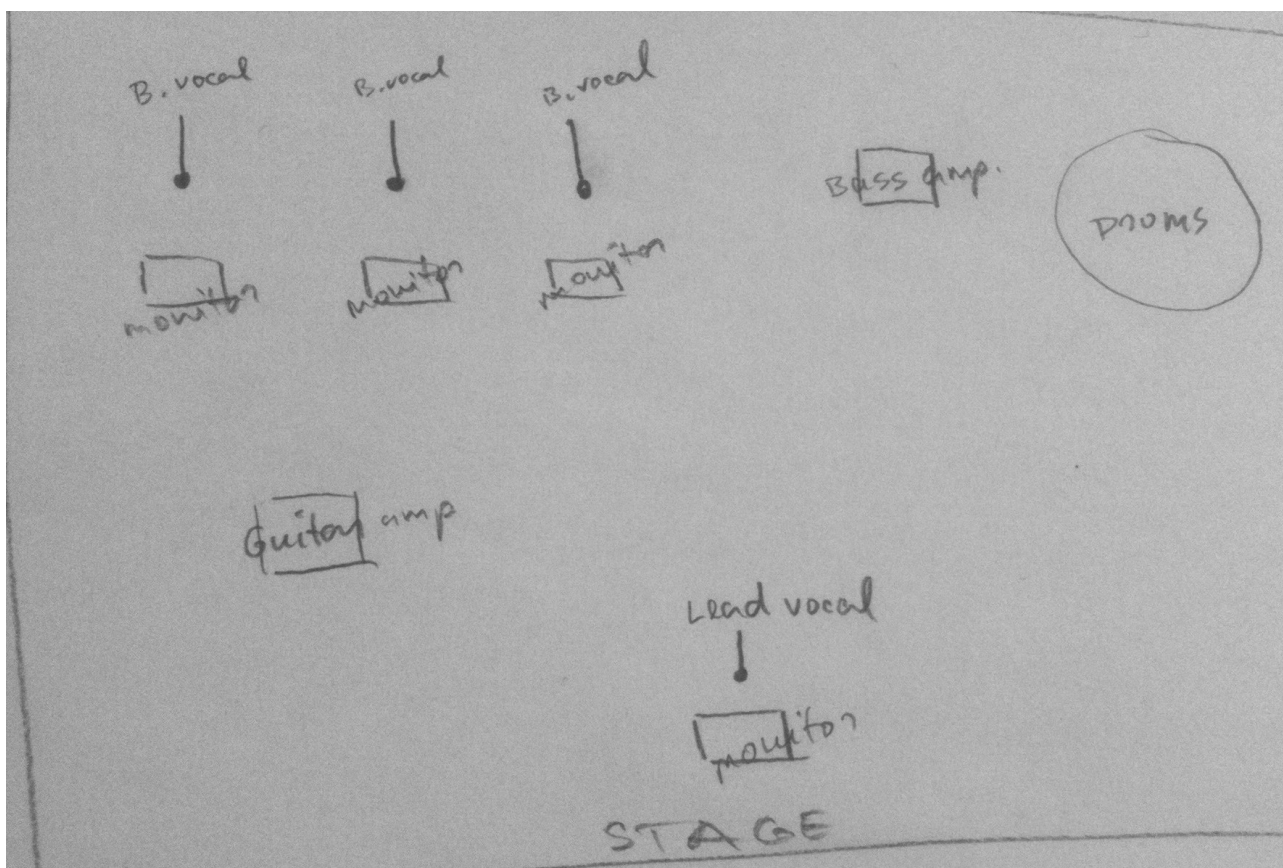 B. vocal
B. vocal
B. vocal
Bass amp.
Droms
monitor
monitor
monitor
Guitar amp
Lead vocal
monitor
STAGE